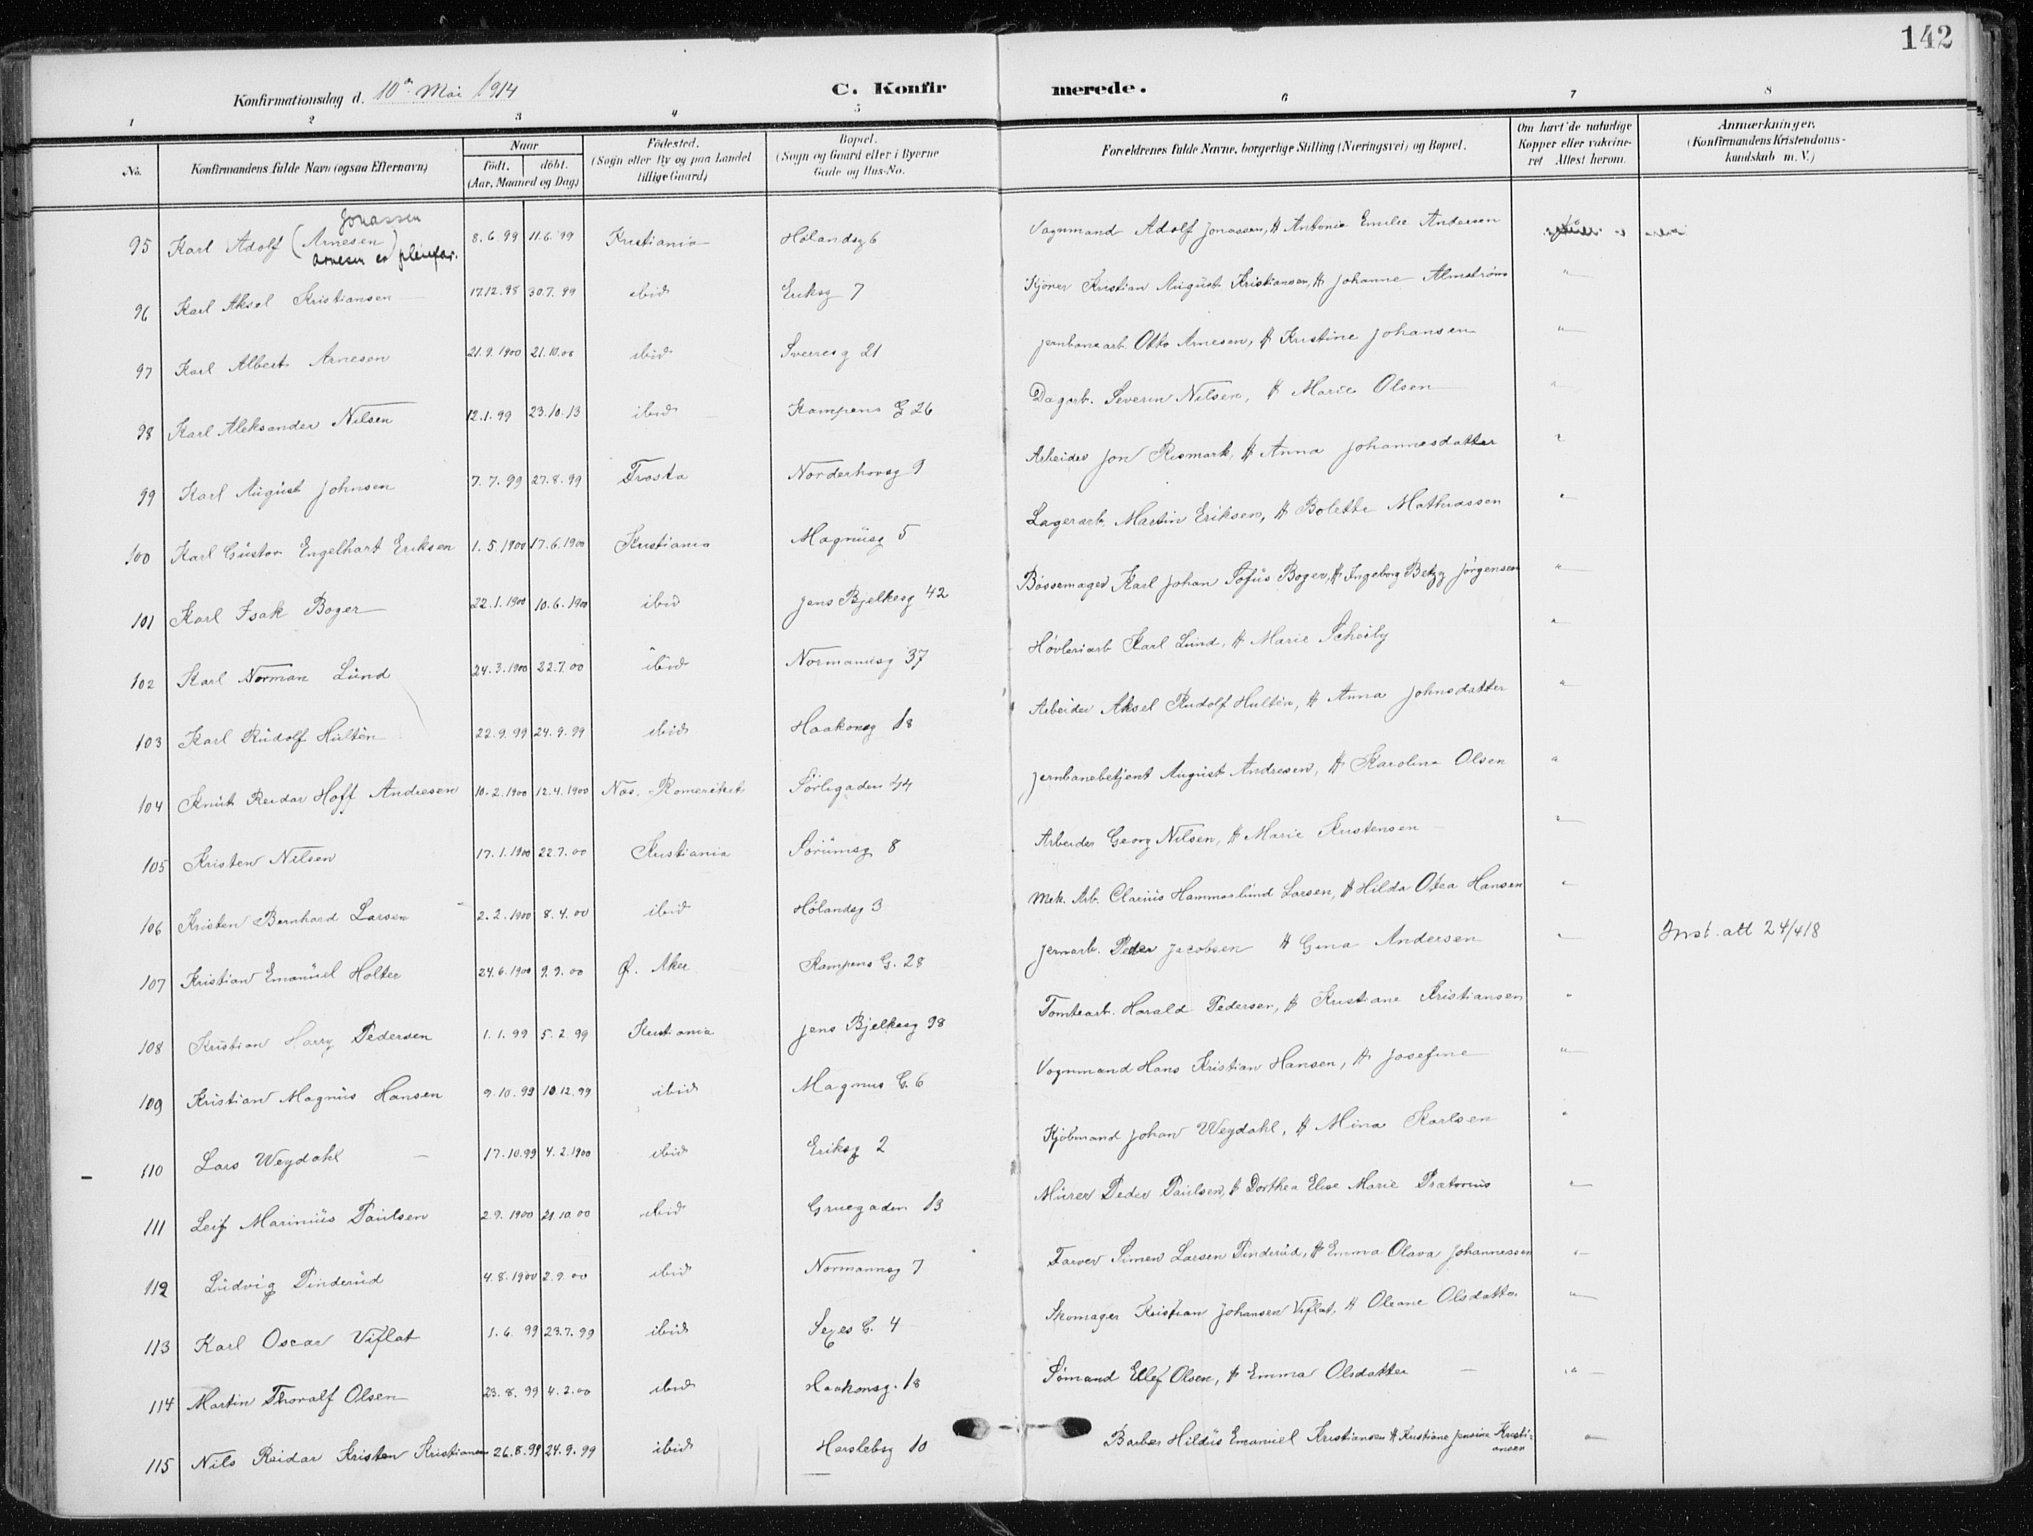 142
Konfirmationsdag d. 10de Mai 1914 C. Konfirmerede.
1 2 3 4 5 6 7 8
No. Konfirmandens fulde Navn (ogsaa Efternavn) Naar født. døbt. (Aar, Maaned og Dag) Fødested. (Sogn eller By og paa Landet tillige Gaard) Bopæl. (Sogn og Gaard eller i Byerne Gade og Hus-No. Forældrenes fulde Navne, borgerlige Stilling (Næringsvei) og Bopæl. Om havt de naturlige Kopper eller vakcineret Attest herom. Anmærkninger. (Konfirmandens Kristendomskundskab m. V.)
Jonassen
95 Karl Adolf (Arnesen) 8.6.99 11.6.99 Kristiania Hølandsg 6 Vognmand Adolf Jonassen, H Antonie Emilie Andersen
Arnesen er pleiefar.
96 Karl Aksel Kristiansen 17.12.98 30.7.99 ibid Eriksg 7 Kjører Kristian August Kristiansen, H Johanne Almstrøm "
97 Karl Albert Arnesen 21.9.1900 21.10.00 ibid Sverresg 21 Jernbanearb. Otto Arnesen, H Kristine Johansen "
98 Karl Aleksander Nilsen 12.1.99 23.10.13 ibid Kampens G 26 Dagarb. Severin Nilsen, H Marie Olsen "
99 Karl August Johnsen 7.7.99 27.8.99 Frosta Norderhovsg 9 Arbeider Jon Rismark, H Anna Johannesdatter "
100 Karl Gustav Engelhart Eriksen 1.5.1900 17.6.1900 Kristiania Magnusg 5 Lagerarb. Martin Eriksen, H Bolette Mathiassen "
101 Karl Isak Boger 22.1.1900 10.6.1900 ibid Jens Bjelkesg 42 Bøssemager Karl Johan Sofus Boger, H Ingeborg Betzy Jørgensen "
102 Karl Norman Lund 24.3.1900 22.7.00 ibid Normandsg 37 Høvleriarb Karl Lund, H Marie Scheily "
103 Karl Rudolf Hultén 22.9.99 24.9.99 ibid Haakonsg 18 Arbeider Aksel Rudolf Hultén, H Anna Johnsdatter "
104 Knut Reidar Hoff Andresen 10.2.1900 12.4.1900 Næs. Romeriket Sørligaden 44 Jernbanebetjent August Andresen, H Karoline Olsen "
105 Kristen Nilsen 17.1.1900 22.7.00 Kristiania Sørumsg 8 Arbeider Georg Nilsen, H Marie Kristensen "
106 Kristen Bernhard Larsen 2.2.1900 8.4.00 ibid Hølandsg 3 Mek. Arb. Clarius Hammerlund Larsen, H Hilda Otea Hansen "
107 Kristian Emanuel Holter 24.6.1900 9.9.00 Ø. Aker Kampens G. 28 Jernarb. Peder Jacobsen H Gina Andersen " Inst. att 24/4 18
108 Kristian Harry Pedersen 1.1.99 5.2.99 Kristiania Jens Bjelkesg 98 Tomtearb. Harald Pedersen, H Kristiane Kristiansen "
109 Kristian Magnus Hansen 9.10.99 10.12.99 ibid Magnus G. 6 Vognmand Hans Kristian Hansen, H Josefine "
110 Lars Weydahl 17.10.99 4.2.1900 ibid Eriksg 2 Kjøbmand Johan Weydahl, H Mina Karlsen "
111 Leif Marinius Paulsen 2.9.1900 21.10.00 ibid Gruegaden 13 Murer Peder Paulsen, H Dorthea Elise Marie Prætorius "
112 Ludvig Pinderud 4.8.1900 2.9.00 ibid Normannsg 7 Farver Simen Larsen Pinderud, H Emma Olava Johannessen "
113 Karl Oscar Viflat 1.6.99 23.7.99 ibid Sexes G. 4 Skomager Kristian Johansen Viflat, H Oleane Olsdatter "
114 Martin Thoralf Olsen 23.8.99 4.2.00 ibid Haakonsg. 18 Sømand Ellef Olsen, H Emma Olsdatter "
115 Nils Reidar Kristen Kristiansen 26.8.99 24.9.99 ibid Harslebsg 10 Barber Hildus Emanuel Kristiansen H Kristiane Jensine Kristiansen "